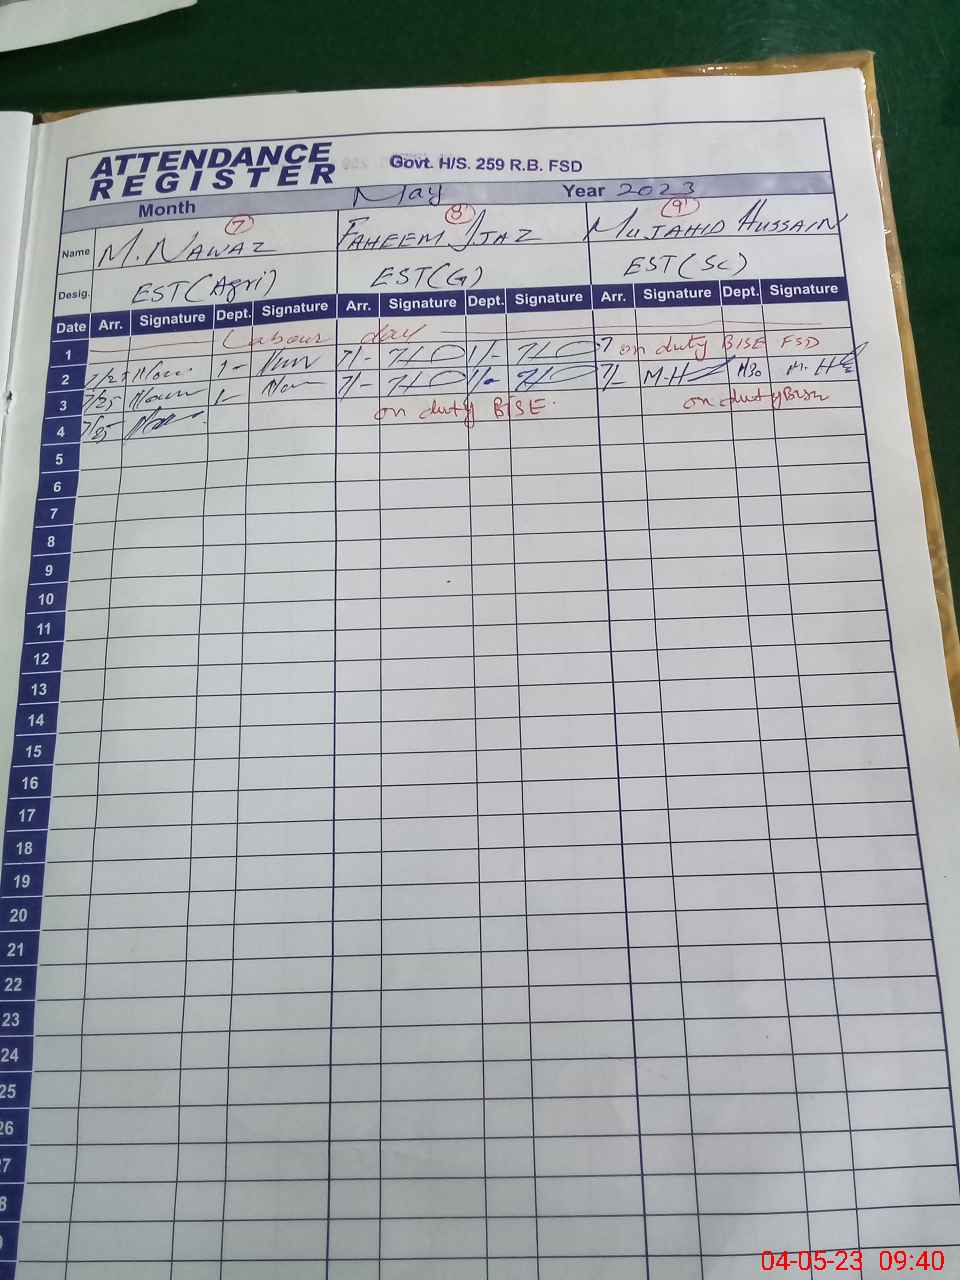 ATTENDANCE REGISTER Govt. H/S. 259 R.B. FSD
Month May Year 2023
7 8 9
Name M. NAWAZ FAHEEM IJAZ MUJAHID HUSSAIN
Desig. EST (Agri) EST (G) EST (SC)
Date Arr. Signature Dept. Signature Arr. Signature Dept. Signature Arr. Signature Dept. Signature
1 Labour day
on duty BISE FSD
2 7/- 1/- 7/- M.H
3 7/25 7/-
on duty BISE. on duty Bise
4 7/25
5
6
7
8
9
10
11
12
13
14
15
16
17
18
19
20
21
22
23
24
25
26
27
8
04-05-23 09:40